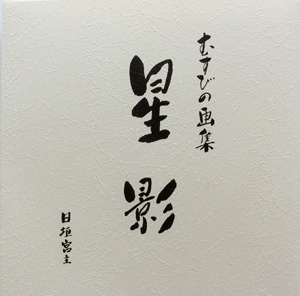 むすびの画集
星影
日垣宮主